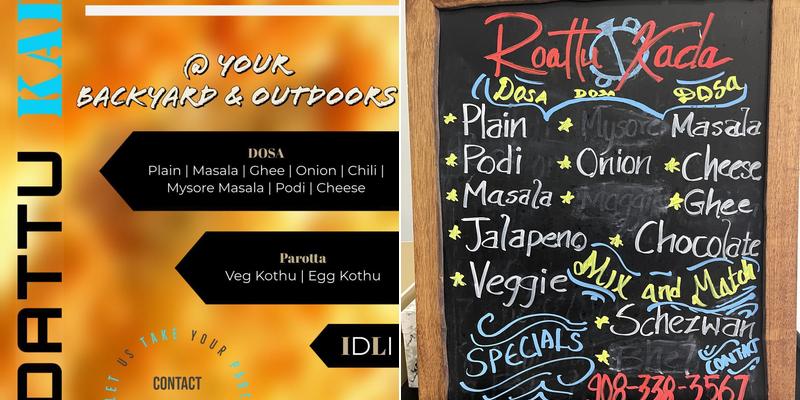 @ YOUR
BACKYARD & OUTDOORS
DOSA
Plain | Masala | Ghee | Onion | Chili |
Mysore Masala | Podi | Cheese
Parotta
Veg Kothu | Egg Kothu
IDLI
DATTU KAD
LET US TAKE YOUR
CONTACT
Roattu Kada
DOSA DOSA DOSA
Plain Mysore Masala
Podi Onion Cheese
Masala Maggie Ghee
Jalapeno Chocolate
Veggie Mix and Match
Schezwan
SPECIALS
CONTACT
908-338-3567